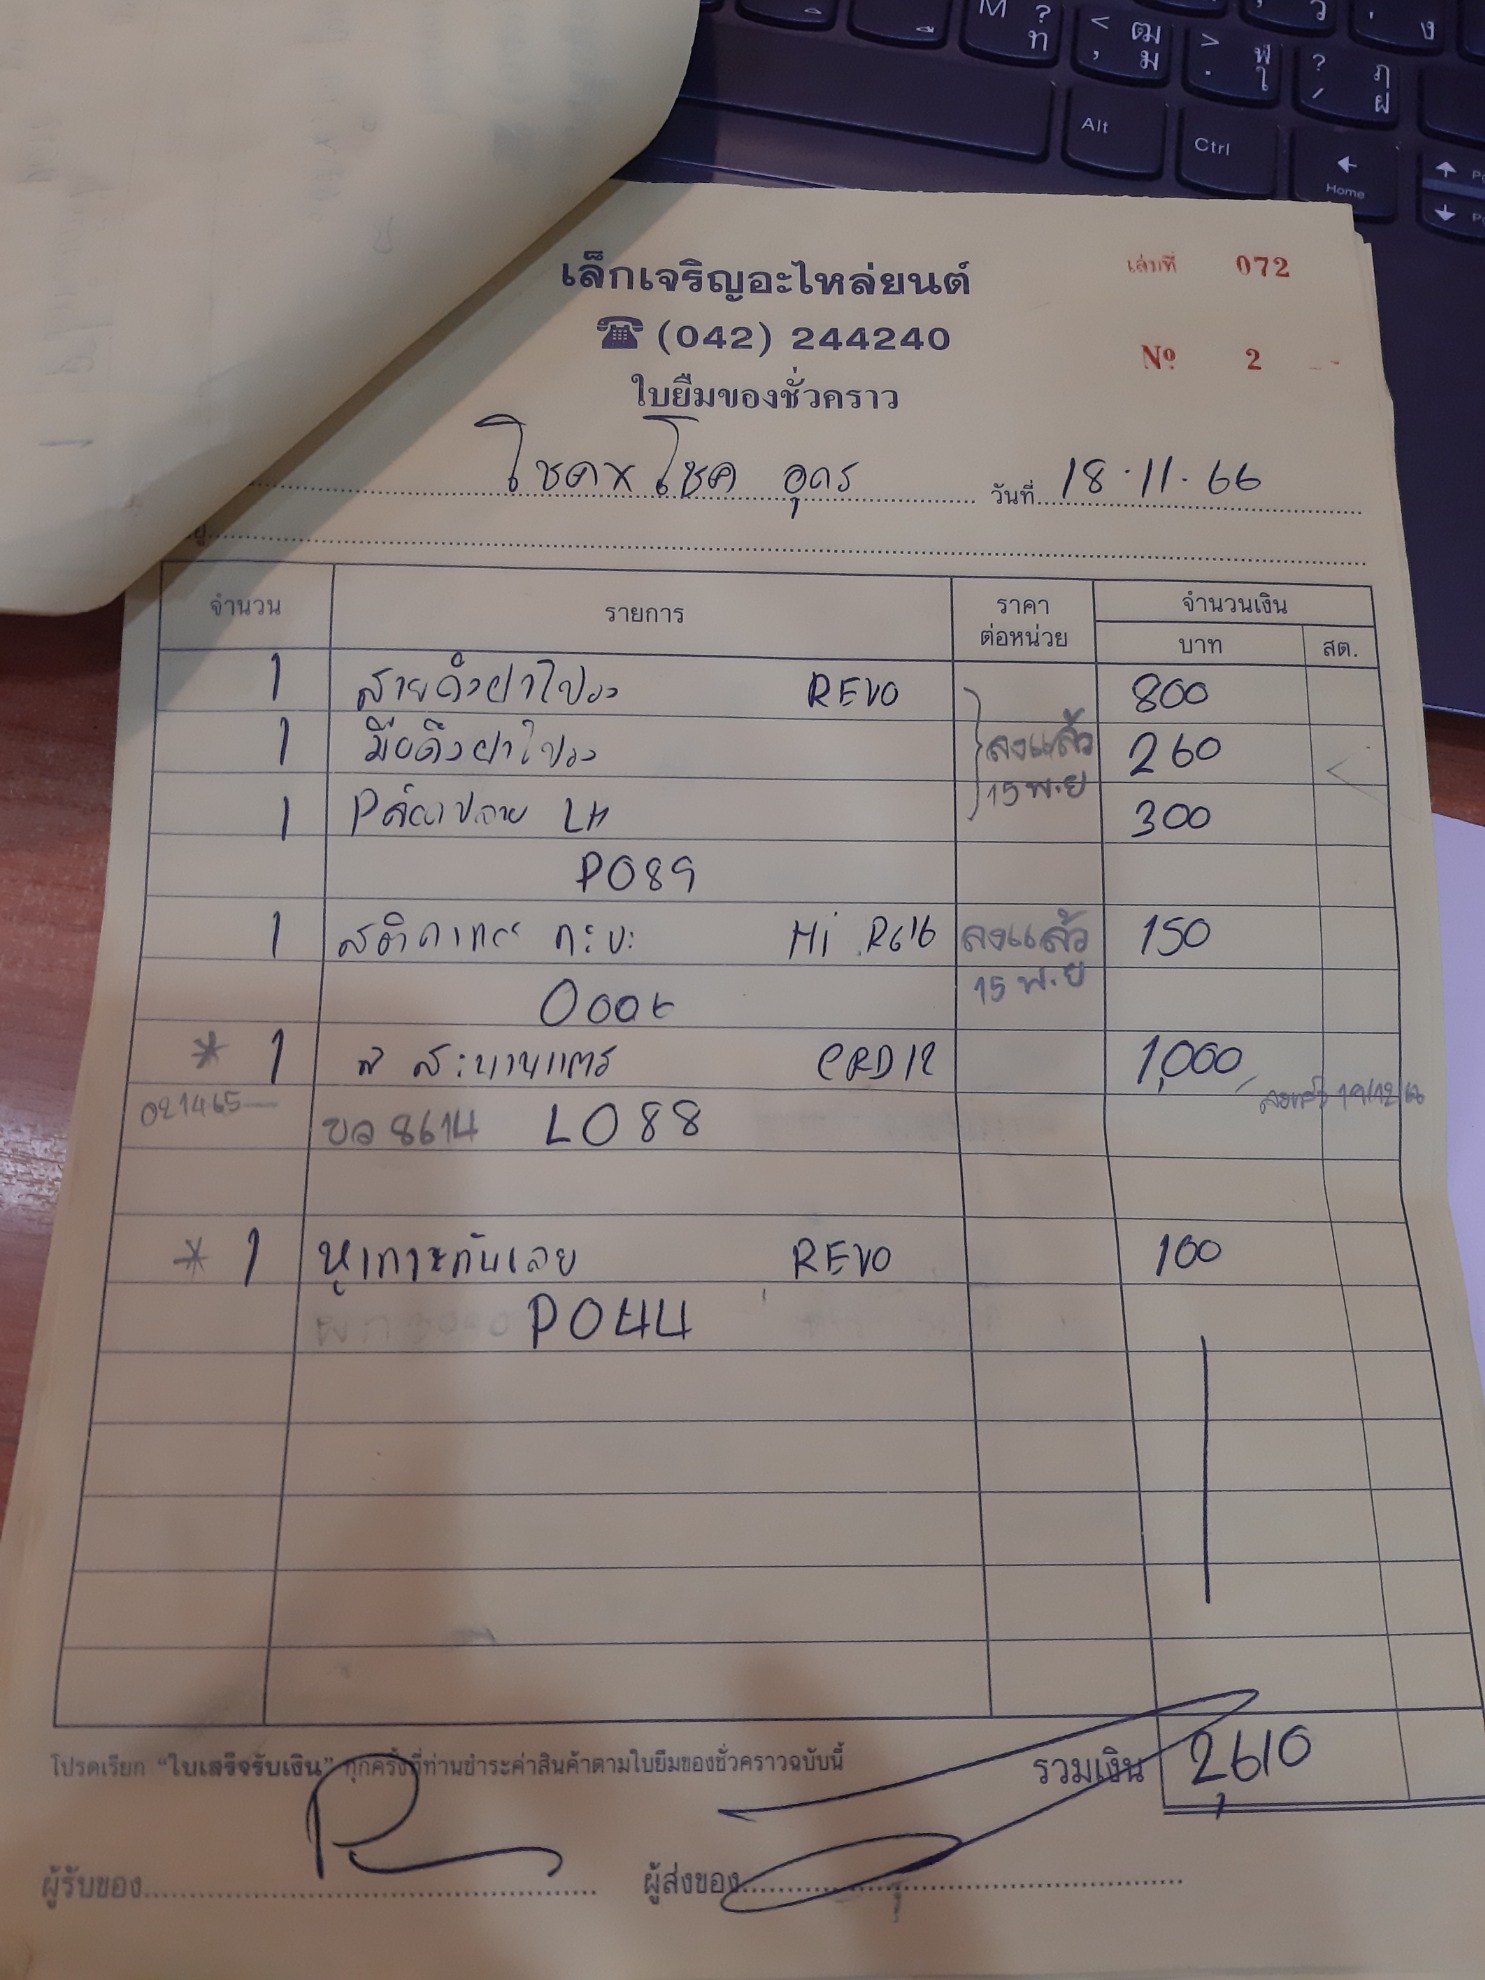 M ? ท < , ฒ ม > . ฬ ใ ? / ฦ ฝ
Alt Ctrl Home
เล็กเจริญอะไหล่ยนต์
เล่มที่ 072
(042) 244240
Nº 2
ใบยืมของชั่วคราว
โชค x โชค อุดร วันที่ 18.11.66
จำนวน รายการ ราคาต่อหน่วย จำนวนเงิน
บาท สต.
1 สายดึงฝาโปรง REVO 800
1 มือดึงฝาโปรง ลงแล้ว 260
1 LH 15 พ.ย 300
P089
1 สติกเกอร กะบะ Hi ลงแล้ว 150
15 พ.ย
* 1 1,000
021465
8614 L088
* 1 REVO 100
P044
โปรดเรียก “ใบเสร็จรับเงิน” ทุกครั้งที่ท่านชำระค่าสินค้าตามใบยืมของชั่วคราวฉบับนี้ รวมเงิน 2,610
ผู้รับของ ผู้ส่งของ